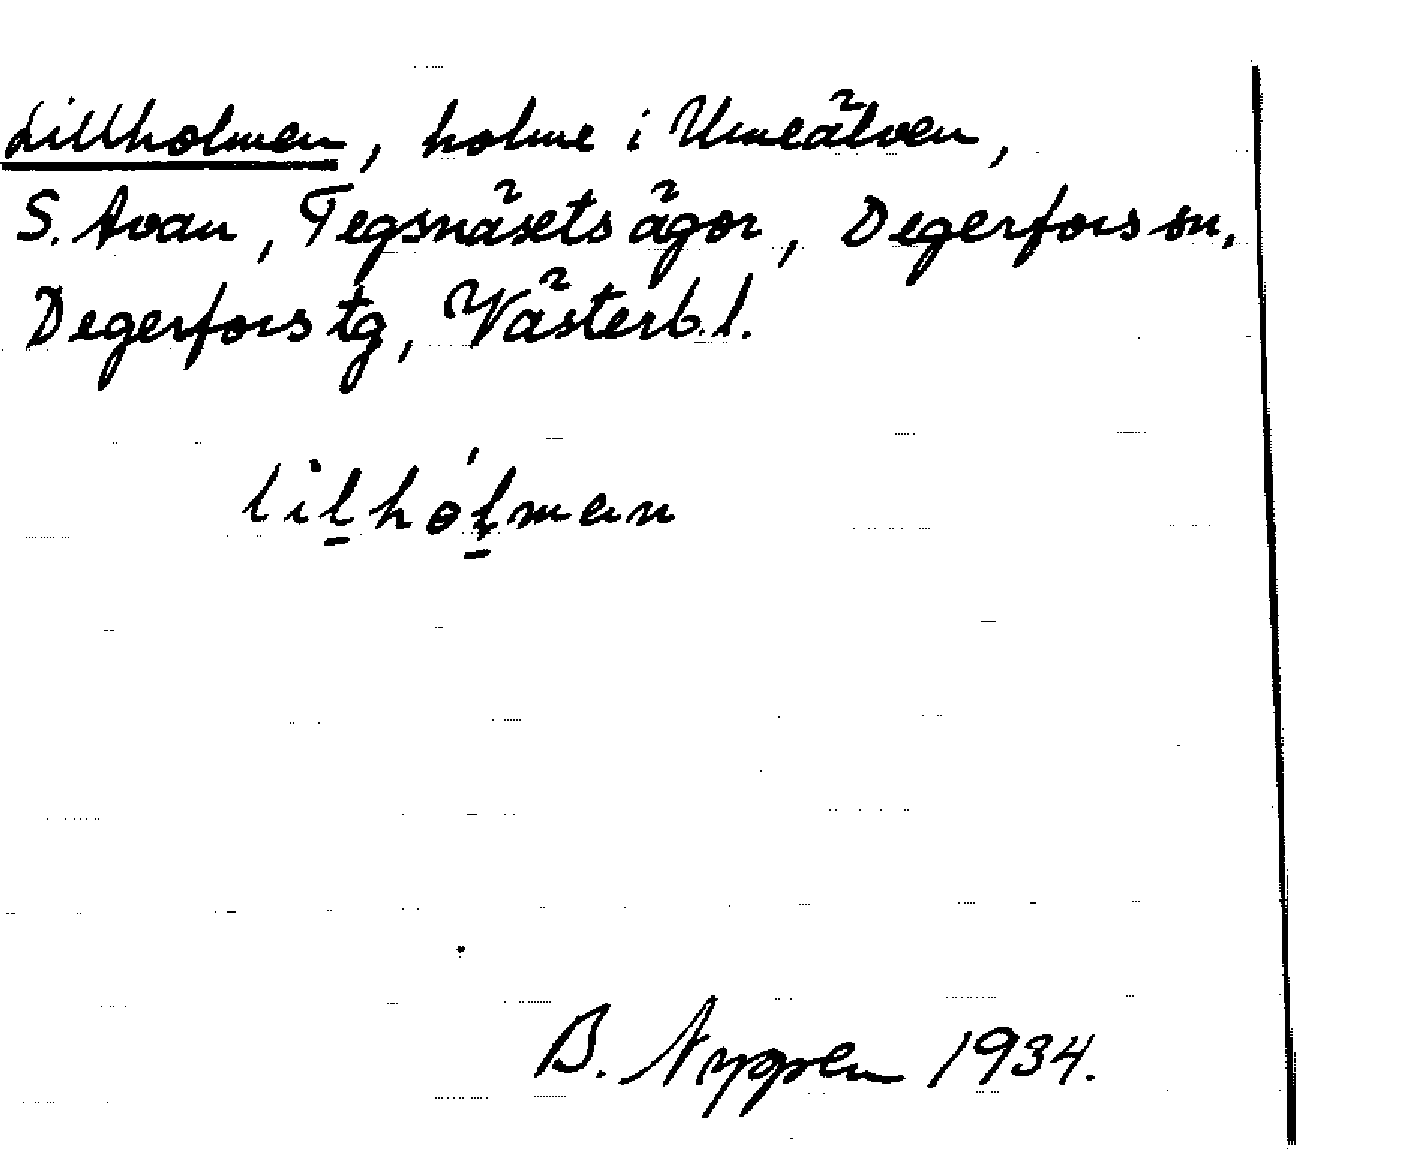 Lillholmen, holme i Umeälven,
S. Avan, Tegsnäsets ägor, Degerfors sn,
Degerfors tg, Västerb. l.
lil̲hól̲man
B. Nygren 1934.